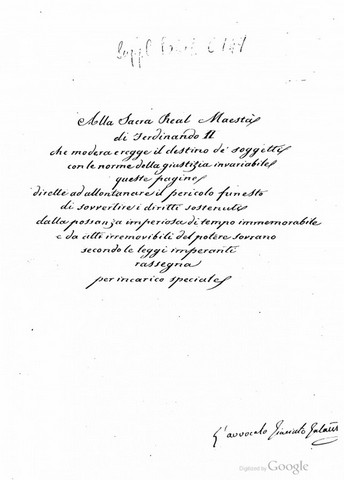 Alla Sacra Real Maestà
di Ferdinando II
che modera e regge il destino de' soggetti
con le norme della giustizia invariabile
queste pagine
dirette ad allontanare il pericolo funesto
di sovvertire i diritti sostenuti
dalla possanza imperiosa di tempo immemorabile
e da atti irremovibili del potere sovrano
secondo le leggi imperanti
rassegna
per incarico speciale
L'avvocato
Digitized by Google